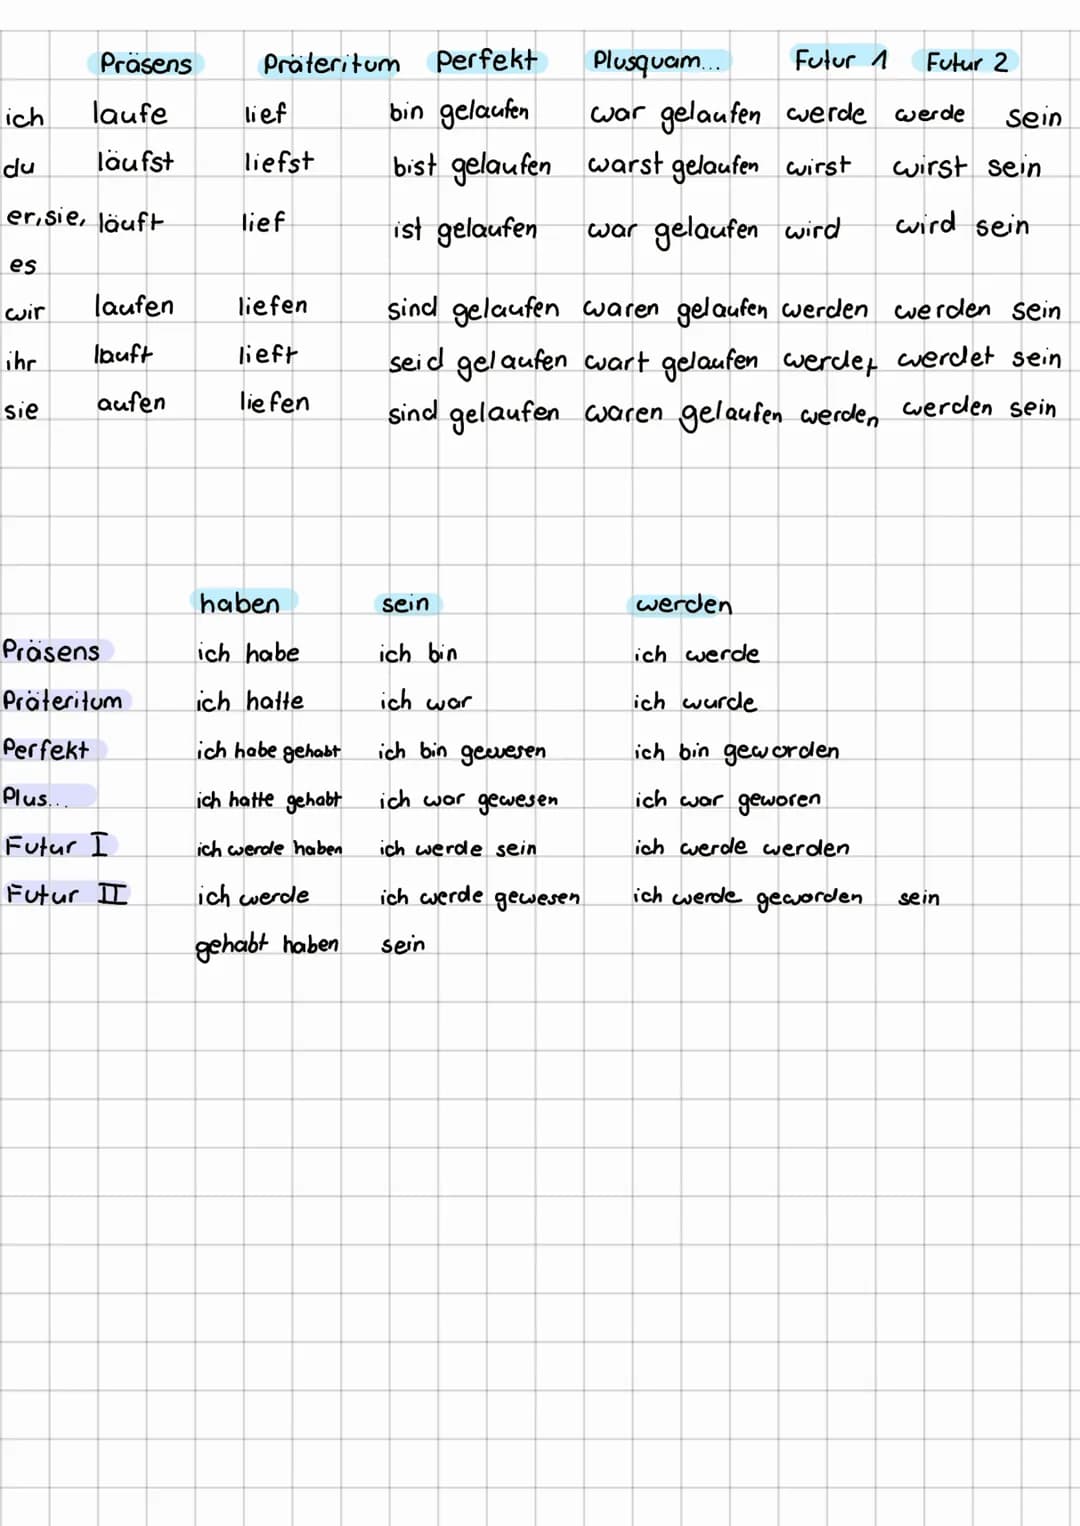 Präsens Präteritum Perfekt Plusquam... Futur 1 Futur 2
ich laufe lief bin gelaufen war gelaufen werde werde sein
du läufst liefst bist gelaufen warst gelaufen wirst wirst sein
er, sie, läuft lief ist gelaufen war gelaufen wird wird sein
es
wir laufen liefen sind gelaufen waren gelaufen werden werden sein
ihr lauft lieft seid gelaufen wart gelaufen werdet werdet sein
sie aufen liefen sind gelaufen waren gelaufen werden werden sein
haben sein werden
Präsens ich habe ich bin ich werde
Präteritum ich hatte ich war ich wurde
Perfekt ich habe gehabt ich bin gewesen ich bin geworden
Plus... ich hatte gehabt ich war gewesen ich war geworen
Futur I ich werde haben ich werde sein ich werde werden
Futur II ich werde ich werde gewesen ich werde geworden sein
gehabt haben sein